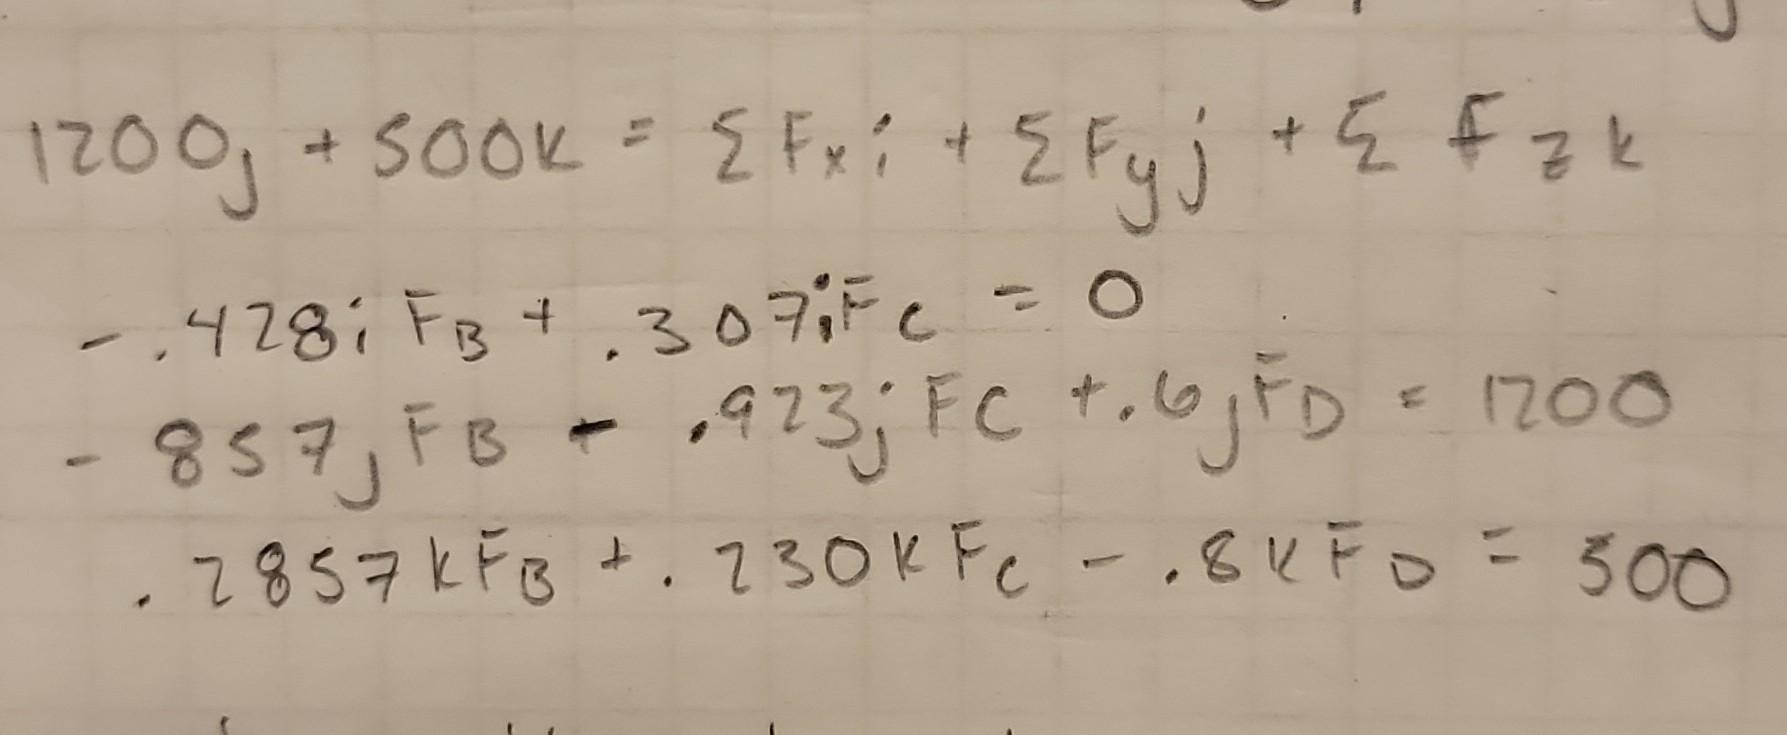 1200j + 500k = ΣFxi + ΣFyj + ΣFzk
-.428i FB + .307iFc = 0
-857jFB - .923jFC + .6jFD = 1200
.2857kFB + .230kFc - .8kFD = 500